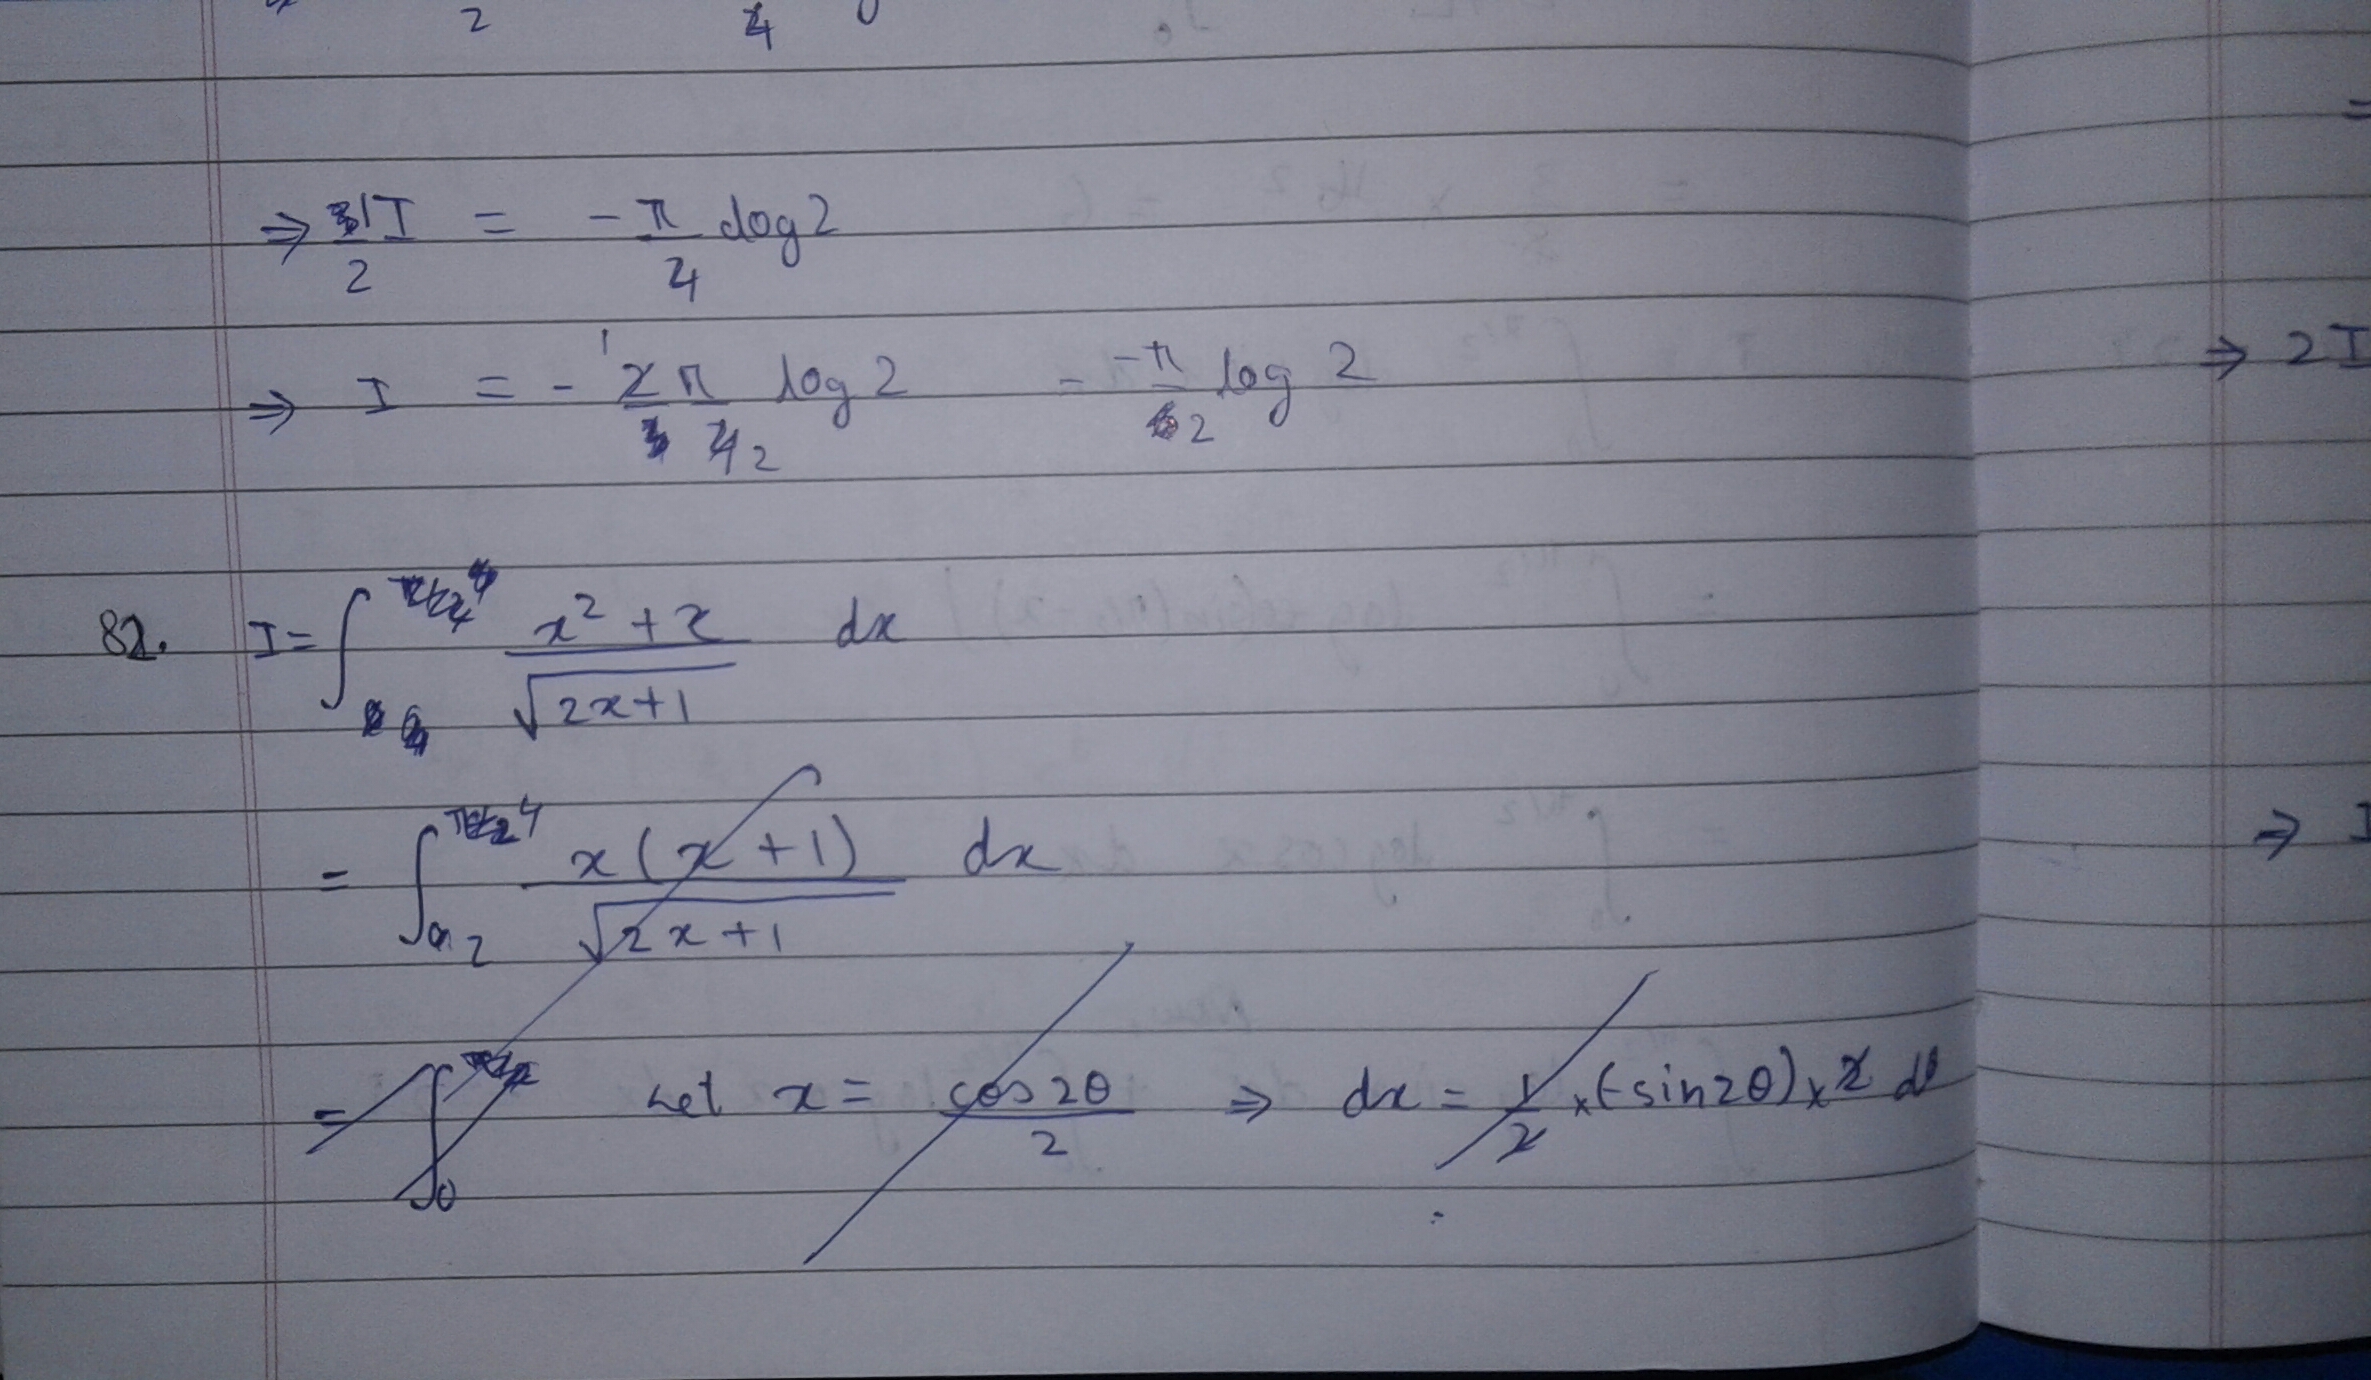 2 4
⇒ I/2 = -π/4 log2
⇒ I = - 2π/4 2 log 2 = -π/2 log 2
⇒ 2I
82. I = ∫ x² + x / √(2x+1) dx
= ∫₂⁴ x(x+1) / √(2x+1) dx
⇒ I
= ∫₀ Let x = cos2θ / 2 ⇒ dx = 1/2 × (-sin2θ) × 2 dθ